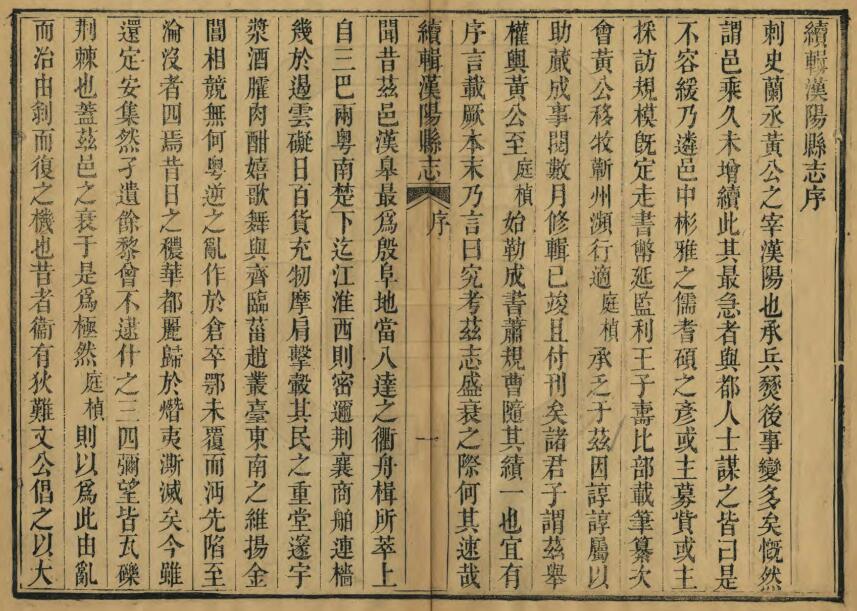 續輯漢陽縣志序
刺史蘭丞黃公之宰漢陽也承兵燹後事變多矣慨然
謂邑乘久未增續此其最急者與都人士謀之皆曰是
不容緩乃遴邑中彬雅之儒耆碩之彥或主募貲或主
採訪規模旣定走書幣延監利王子壽比部載筆纂次
會黃公移牧蘄州瀕行適庭楨承乏于茲因諄諄屬以
助蕆成事閱數月修輯已竣且付刊矣諸君子謂茲舉
權輿黃公至庭楨始勒成書蕭規曹隨其績一也宜有
序言載厥本末乃言曰究考茲志盛衰之際何其速哉
續輯漢陽縣志
序
一
聞昔茲邑漢皋最爲殷阜地當八達之衢舟楫所萃上
自三巴兩粵南楚下迄江淮西則密邇荆襄商舶連檣
幾於遏雲礙日百貨充牣摩肩擊轂其民之重堂邃宇
漿酒臛肉酣嬉歌舞與齊臨菑趙叢臺東南之維揚金
閶相競無何粵逆之亂作於倉卒鄂未覆而沔先陷至
淪沒者四焉昔日之穠華都麗歸於熸夷澌滅矣今雖
還定安集然孑遺餘黎曾不逮什之三四彌望皆瓦礫
荆棘也蓋茲邑之衰于是爲極然庭楨則以爲此由亂
而治由剝而復之機也昔者衞有狄難文公倡之以大